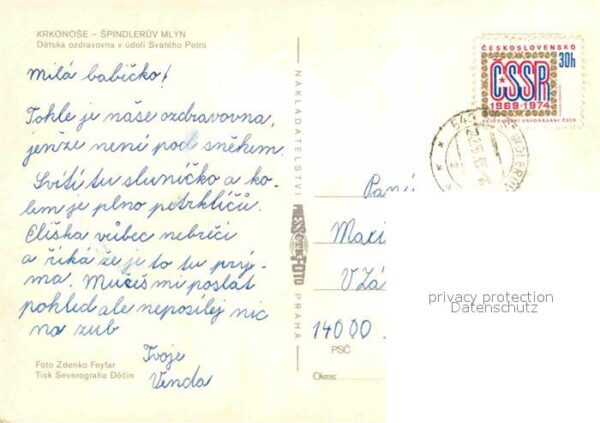 KRKONOŠE – ŠPINDLERŮV MLÝN
Dětská ozdravovna v údolí Svatého Petra
Milá babičko!
Tohle je naše ozdravovna,
jenže není pod sněhem.
Svítí tu sluníčko a ko-
lem je plno petrklíčů.
Eliška vůbec nebrečí
a říká že je to tu prý-
ma. Mučíš mi poslat
pohled ale neposílej nic
na zub
Tvoje
Venda
Foto Zdenko Feyfar
Tisk Severografia Děčín
NAKLADATELSTVÍ
PRESSFOTO
PRAHA
ČESKOSLOVENSKO
30h
ČSSR
1969-1974
Paní
Maxi
V Zá
14000
PSČ
Okres:
privacy protection
Datenschutz